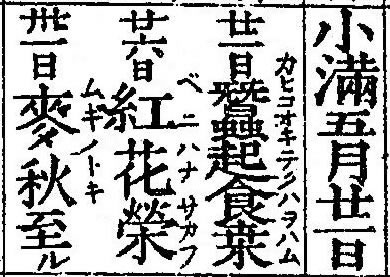 小滿五月廿一日
カヒコオキテクハヲハム
廿一日蠶起食桒
ベニハナサカフ
廿六日紅花榮
ムギノトキ
卅一日麥秋至ル